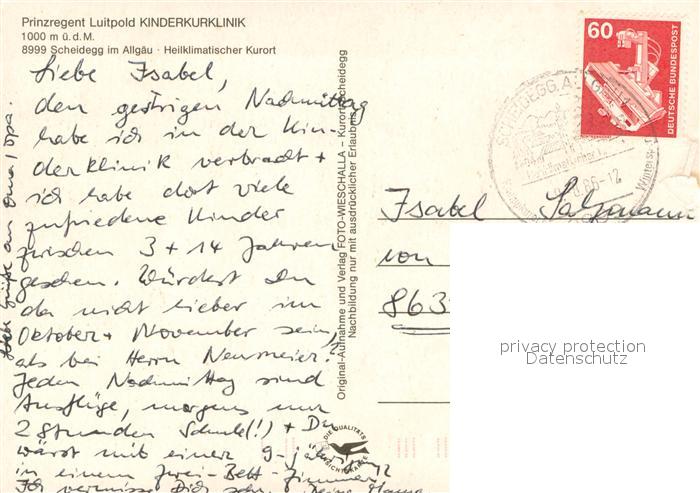 Prinzregent Luitpold KINDERKURKLINIK
1000 m ü.d.M.
8999 Scheidegg im Allgäu · Heilklimatischer Kurort
Liebe Isabel,
den gestrigen Nachmittag
habe ich in der Kin-
derklinik verbracht +
ich habe dort viele
zufriedene Kinder
zwischen 3 + 14 Jahren
gesehen. Würdest Du
da nicht lieber im
Oktober + November sein,
als bei Herrn Neumeier?
Jeden Nachmittag sind
Ausflüge, morgens nur
2 Stunden Schule(!) + Du
wärst mit einer 9-jährigen
in einem Zwei-Bett-Zimmer
Ich vermisse Dich sehr. Deine Mama
Liebe Grüße an Oma / Opa.
Original-Aufnahme und Verlag FOTO-WIESCHALLA – Kurort Scheidegg
Nachbildung nur mit ausdrücklicher Erlaubnis
DIE QUALITÄTS
60
DEUTSCHE BUNDESPOST
SCHEIDEGG, ALLGÄU
Heilklimatischer
86-12
Winters
Isabel Salzmann
von
863
privacy protection
Datenschutz